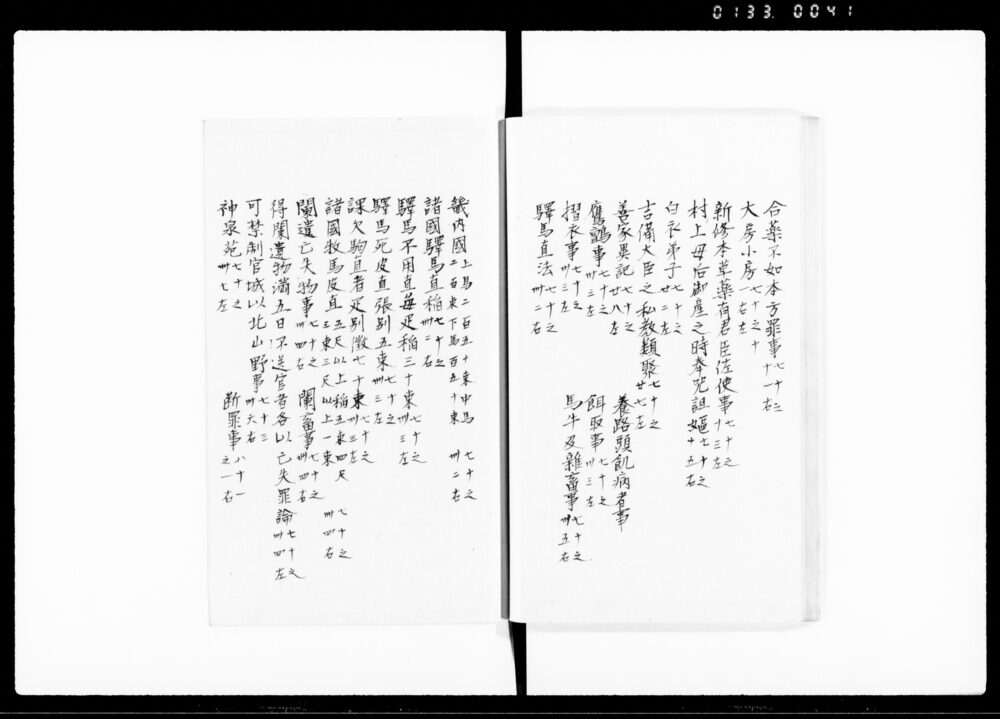 0133 0041
合薬不如本方罪事 七十三 十一右
大房小房 七十之十 一右左
新修本草薬有君臣佐使事 七十之 十三左
村上母后御産之時奉咒詛嫗 七十之 十五右
白衣弟子 七十之 廿二左
吉備大臣之私教類聚 七十之 廿七左
善家異記 七十之 廿八左 養路頭飢病者事
鷹鷂事 七十之 卅三左 餌取事 七十之 卅三左
摺衣事 七十之 卅三左 馬牛及雑畜事 七十之 卅五右
驛馬直法 七十之 卅二右
畿内國 上馬二百五十束中馬 二百束下馬百五十束 七十之 卅二右
諸國驛馬直稲 七十之 卅二右
驛馬不用直毎疋稲三十束 七十之 卅三左
驛馬死皮直張別五束 七十之 卅三左
課欠駒直者疋別徴七十束 七十之 卅三左
諸國牧馬皮直 五尺以上稲五束四尺 三束三尺以上一束 七十之 卅四右
闌遺亡失物事 七十之 卅四右 闌畜事 七十之 卅四右
得闌遺物満五日不送官者各以亡失罪論 七十之 卅四左
可禁制官城以北山野事 七十三 卅六右
神泉苑 七十之 卅七左 断罪事 八十一 之一右